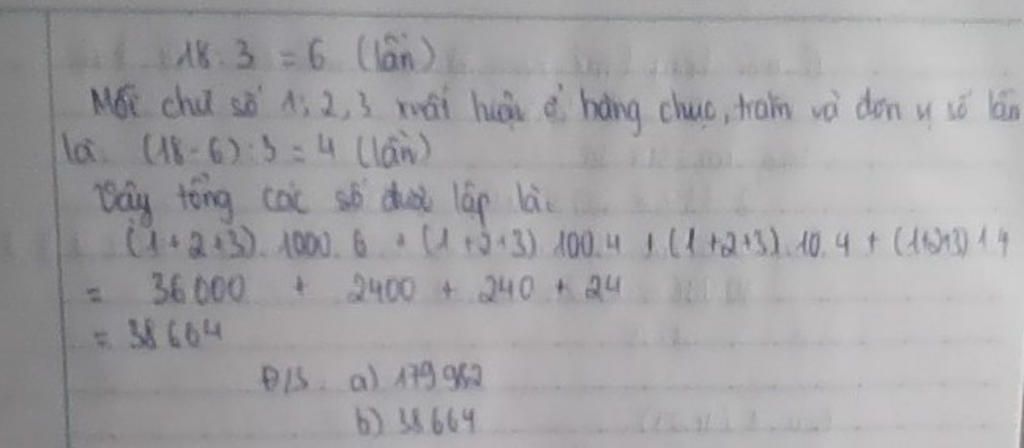 18 : 3 = 6 (lần)
Mỗi chữ số 1; 2, 3 xuất hiện ở hàng chục, trăm và đơn vị số lần
là: (18 - 6) : 3 = 4 (lần)
Vậy tổng các số được lập là:
(1+2+3) . 1000 . 6 + (1+2+3) 100.4 + (1+2+3) . 10.4 + (1+2+3) 1.4
= 36000 + 2400 + 240 + 24
= 38664
Đ/S: a) 179982
b) 38664